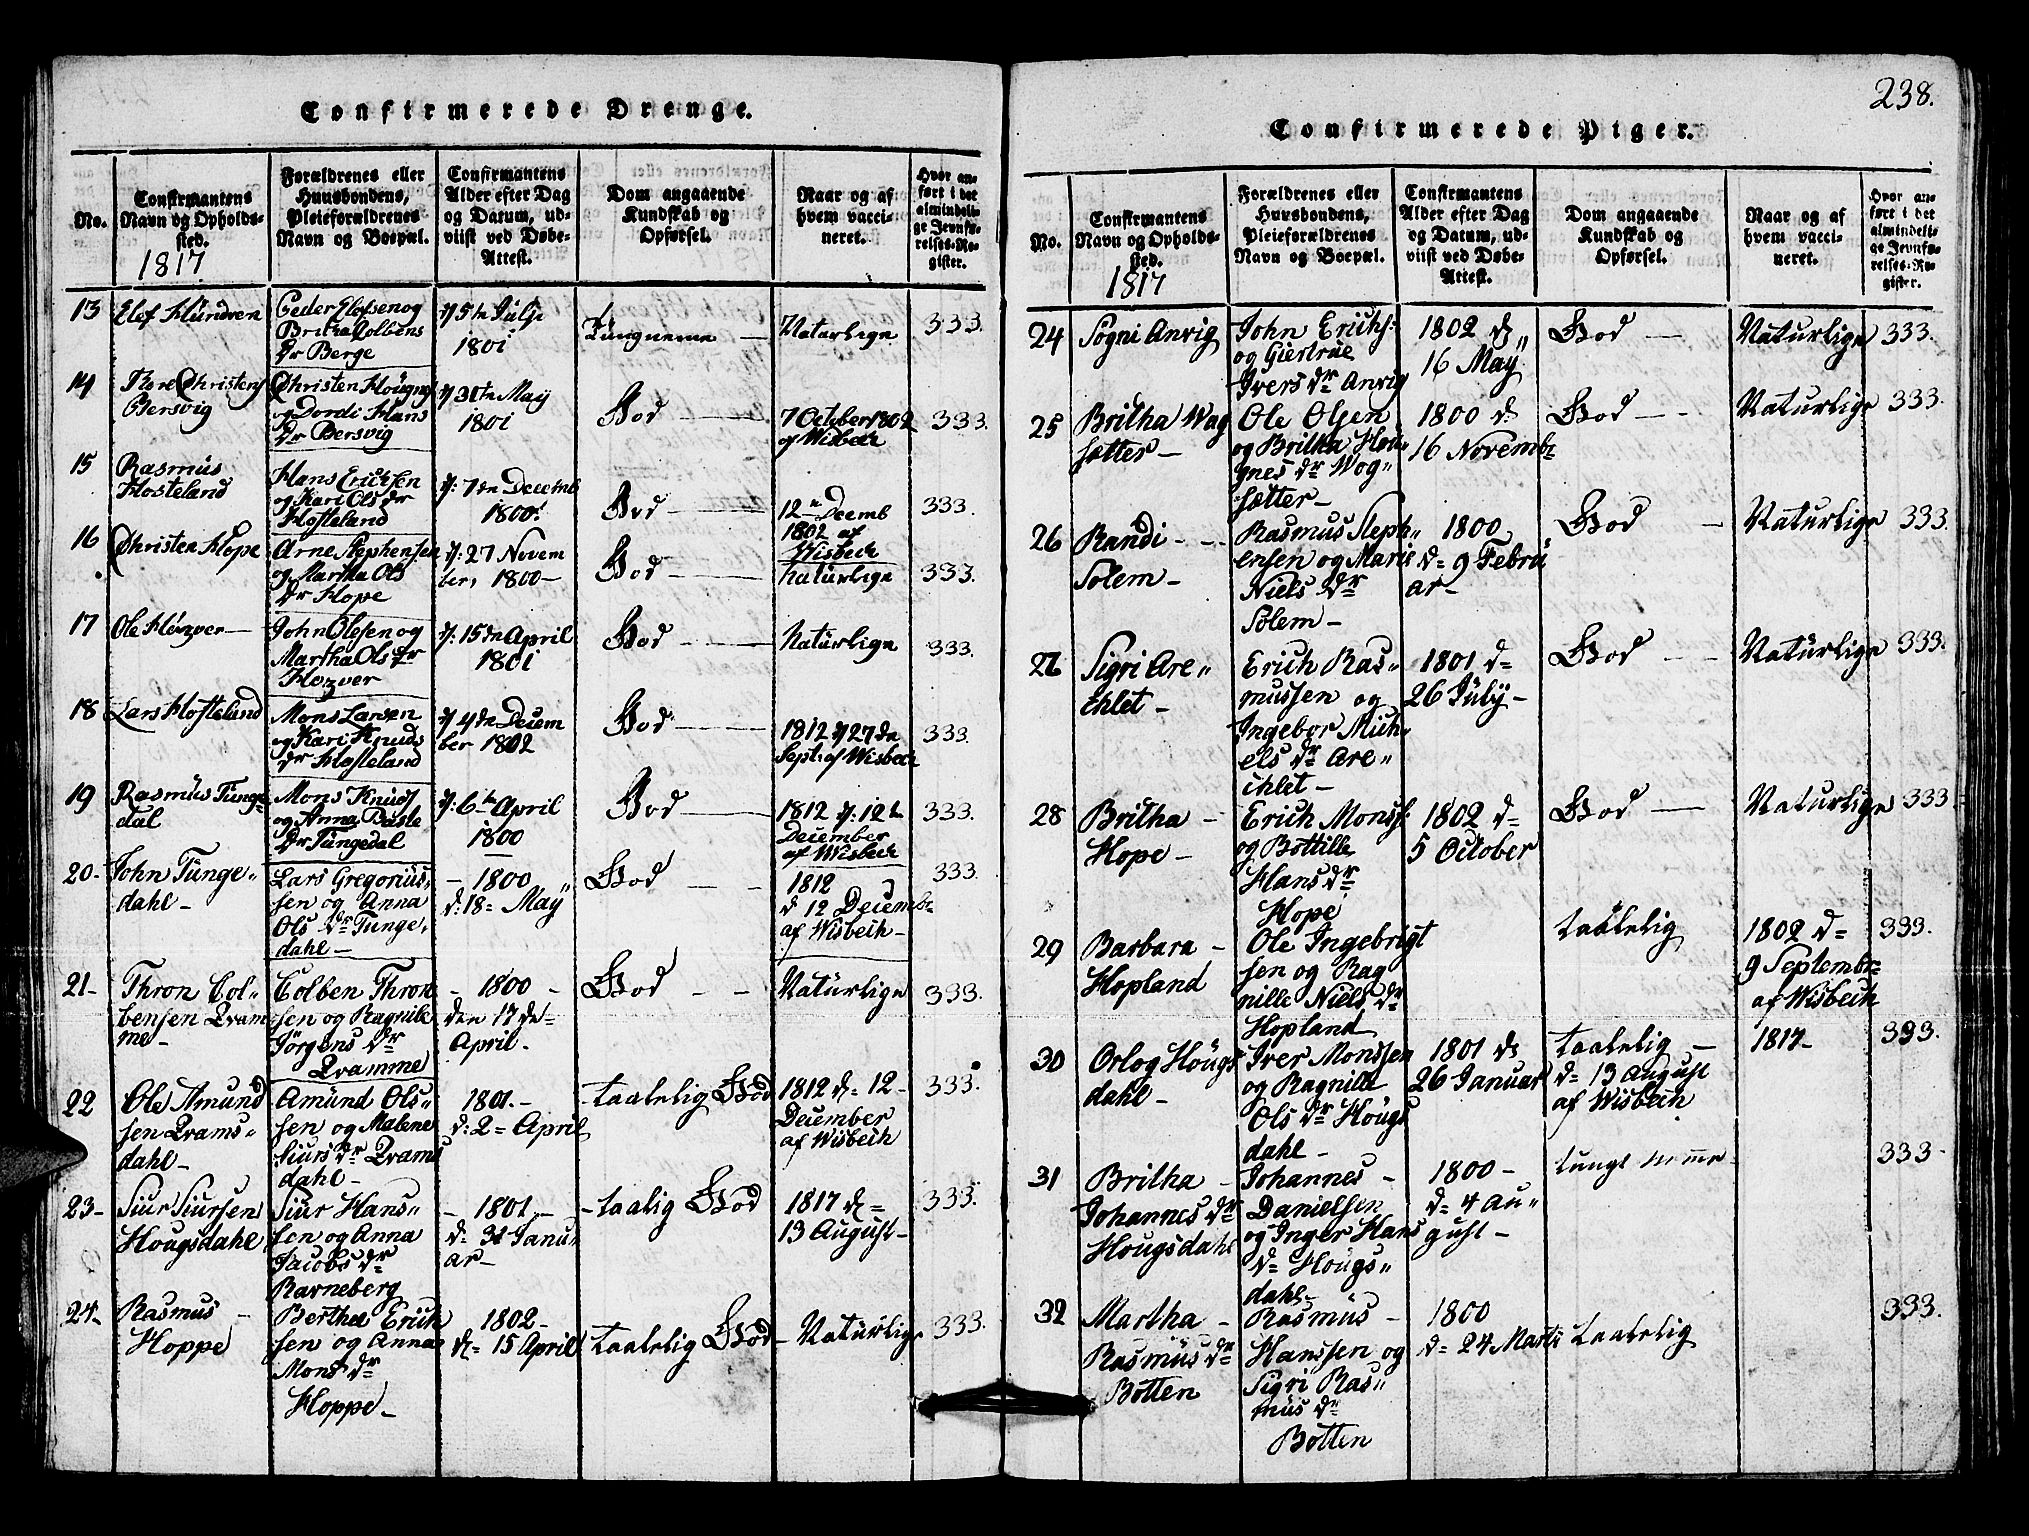 Confirmerede Drenge.
No.
Confirmantens
Navn og Opholds-
sted.
1817
Forældrenes eller
Huusbondens,
Pleieforældrenes
Navn og Boepæl.
Confirmantens
Alder efter Dag
og Datum, ud-
viist ved Døbe-
Attest.
Dom angaaende
Kundskab og
Opførsel.
Naar og af
hvem vacci-
neret.
Hvor an-
ført i det
almindeli-
ge Jevnfø-
relses-Re-
gister.
13
Elef Hundven
Peder Elefsen og
Britha Colbens
Dr Berge
5te July
1801
Tungneme —
Naturlige
333.
14
Christens
Bersvig
Christen Hougnes
og Dordi Hans
Dr Bersvig
30te May
1801
God —
7 October 1802
af Wisbech
333.
15
Rasmus
Hosteland
Hans Erichsen
og Kari Ols dr
Hosteland
7de Decemb
1800
God —
12te Decemb
1802 af
Wisbech
333.
16
Christen Hope
Arne Stephensen
og Martha Ols
Dr Hope
27 Novem
ber, 1800 —
God —
Naturlige
333.
17
Ole Hözver —
John Olesen og
Martha Ols dr
Hozver
15de April
1801
God —
Naturlige
333.
18
Lars Hosteland
Mons Larsen
og Kari Knuds
dr Hosteland
4de Decem
ber 1802
God —
1812 27de
Sept: af Wisbech
333.
19
Rasmus Tunge-
dal
Mons Knuds
og Anna
Dr Tungedal
6te April
1800
God —
1812 12te
December
af Wisbech
333.
20-
John Tunge-
dahl-
Lars Gregorius-
sen og Anna
Ols dr Tunge-
dahl-
- 1800
d: 18= May
God - -
1812
d 12 Decembr
af Wisbech-
333.
21-
Thron Col-
bensen Qvam-
me-
Colben Thron-
sen og Ragnile
Jörgens dr
Qvamme
- 1800 -
den 17de=
April-
God - -
Naturlige
333.
22
Ole Amund
sen Qvams-
dahl-
Amund Ols-
sen og Malene
Siurs dr Qvams
dahl-
1801.-
d: 2= April
taalelig God
1812 d= 12-
December
af Wisbech
333.
23-
Siur Siursen
Hougsdahl
Siur Hans-
sen og Anna
Jacobs dr
Ravneberg
- 1801.-
d= 31 Janu-
ar-
- taalig God
1817 d=
13 August-
333.
24-
Rasmus -
Hoppe
Berthel Erich
sen og Anna
Mons dr
Hoppe-
1802-
d= 15 April
taalelig God-
Naturlige
333.
238.
Confirmerede Piger.
No.
Confirmantens
Navn og Opholds-
sted.
1817
Forældrenes eller
Huusbondens,
Pleieforældrenes
Navn og Boepæl.
Confirmantens
Alder efter Dag
og Datum, ud-
viist ved Døbe-
Attest.
Dom angaaende
Kundskab og
Opførsel.
Naar og af
hvem vacci-
neret.
Hvor an-
ført i det
almindeli-
ge Jevnfø-
relses-Re-
gister.
24
Sogni Anvig
John Erichs:
og Giertrue
Ivers dr Anvig
1802 d
16 May
God -
Naturlige
333.
25
Britha Wag
sætter-
Ole Olsen
og Britha Hou-
gnes dr Wog-
sætter-
1800 d
16 Novembr
God - -
Naturlige
333.
26
Randi - -
Solem-
Rasmus Steph-
ensen og Marie
Niels dr
Solem-
1800-
d= 9 Febru
ar-
God -
Naturlige
333
27
Sigri Are-
chlet-
Erich Ras-
mussen og
Ingebor Mich-
els dr Are-
chlet-
1801 d=
26 July-
God - -
Naturlige
333.
28
Britha -
Hope-
Erich Monss:
og Bottille
Hans dr
Hope
1802 d=
5 October
God -
Naturlige
333
29
Barbara -
Hopland
Ole Ingebrigt
sen og Rag
nille Niels dr
Hopland
taalelig
1802 d=
9 Septembr=
af Wisbech
333.
30
Orlog Hougs
dahl-
Iver Monssen
og Ragnille
Ols dr Hougs
dahl-
1801 d
26 Januar
taalelig -
d= 13 August
af Wisbech
1817-
333.
31
Britha -
Johannes dr
Hougsdahl
Johannes -
Danielsen
og Inger Hans
d= Hougs-
dahl-
1800-
d= 4 Au-
gust-
tungt nemme
333-
32
Martha -
Rasmus dr
Botten
Rasmus -
Hanssen og
Sigri Ras-
mus dr
Botten
1800
d= 24 Marti
taalelig
333.